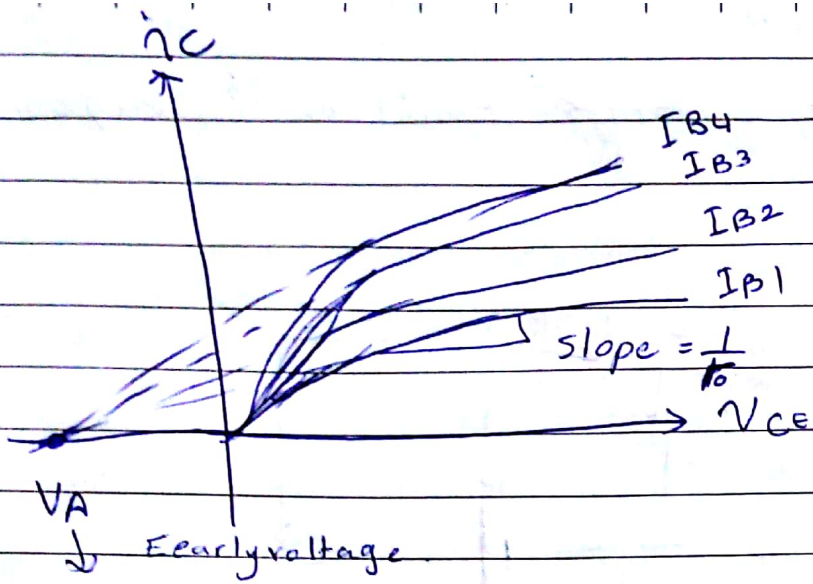 iC
IB4
IB3
IB2
IB1
slope = 1/ro
VCE
VA
↓ Eearlyvoltage